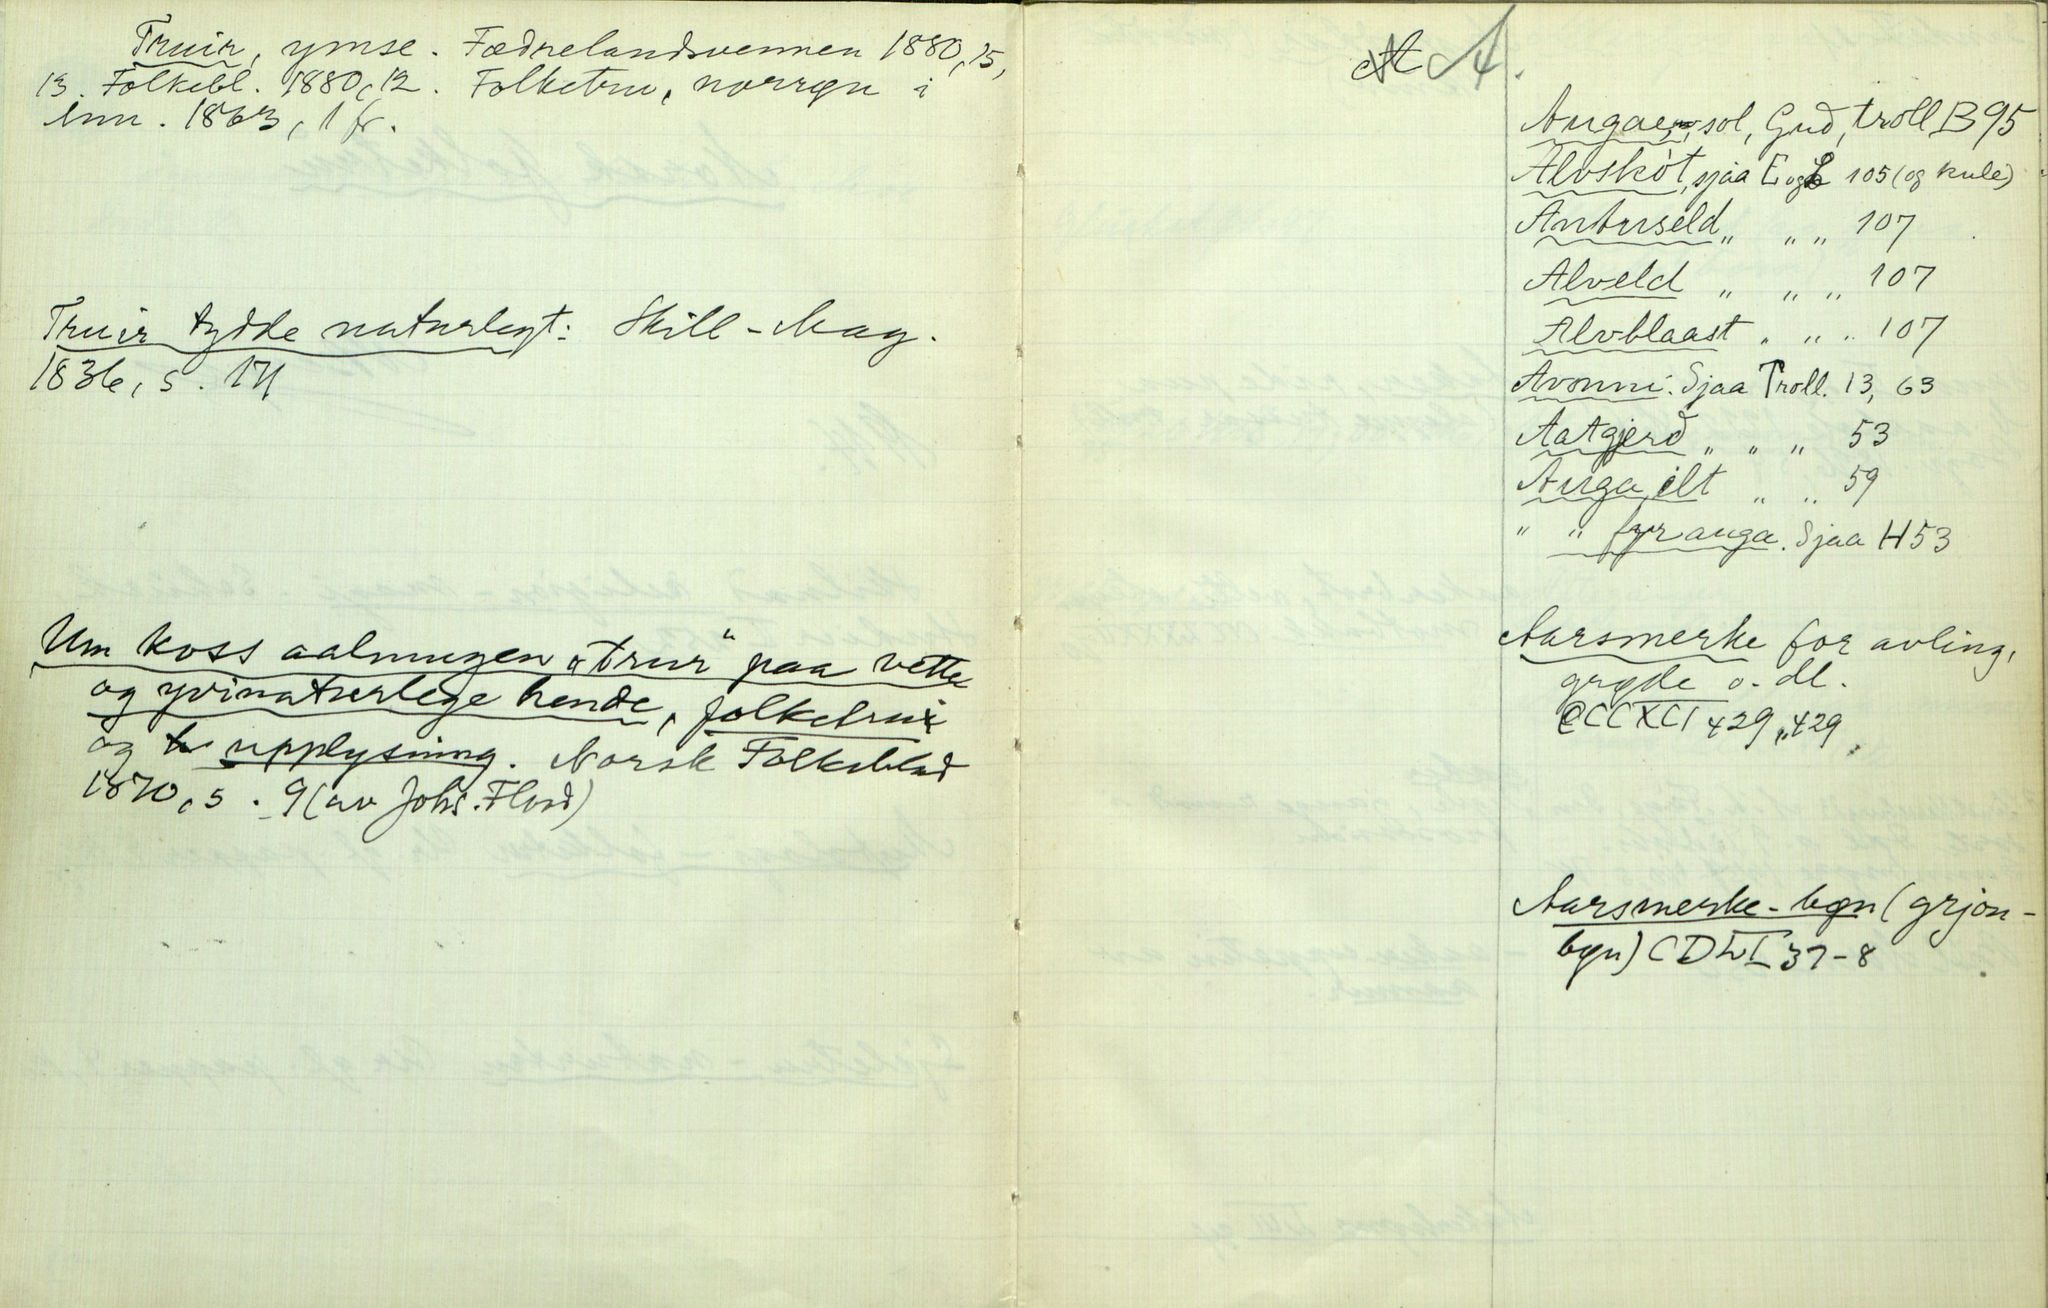 Truir, ymse. Fædrelandsvennen 1880, 15,
13. Folkebl. 1880, 12. Folketru, norrøn i
Inn. 1863, 1 fr.
Truir tydde naturlegt: Skill-Mag.
1836, s. 171
Um koss aalmugen "trur" paa vette
og yvinaturlege hende, folketrui
og upplysning. Norsk Folkeblad
1870, s. 9 (av Johs. Flod)
A.
Auga, sol, Gud, troll B 95
Alvskòt, sjaa E og L 105 (og kule)
Antuseld „ „ „ 107
Alveld „ „ „ 107
Alvblaast „ „ „ 107
Avonni. Sjaa Troll. 13, 63
Aatgjerd „ „ „ 53
Auga, ilt „ „ 59
„ „ fyr auga. Sjaa H 53
Aarsmerke for avling,
grøde o. dl.
CCCXCI 429, 429
Aarsmerke-bøn (grjon-
bøn) CDLI 37-8